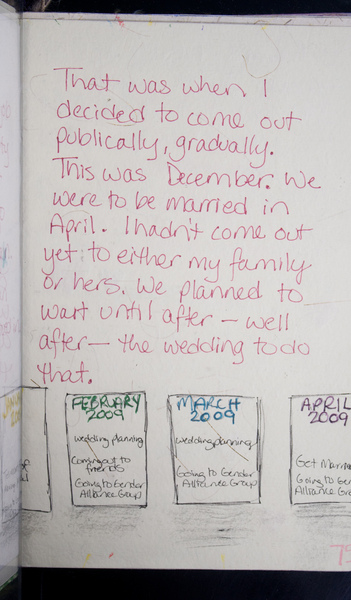 That was when I
decided to come out
publically, gradually.
This was December. We
were to be married in
April. I hadn't come out
yet to either my family
or hers. We planned to
wait until after – well
after – the wedding to do
that.
FEBRUARY
2009
wedding planning
coming out to
friends
Going to Gender
Alliance Group
MARCH
2009
wedding planning
Going to Gender
Alliance Group
APRIL
2009
Get Marr
Going to Ge
Alliance Gr